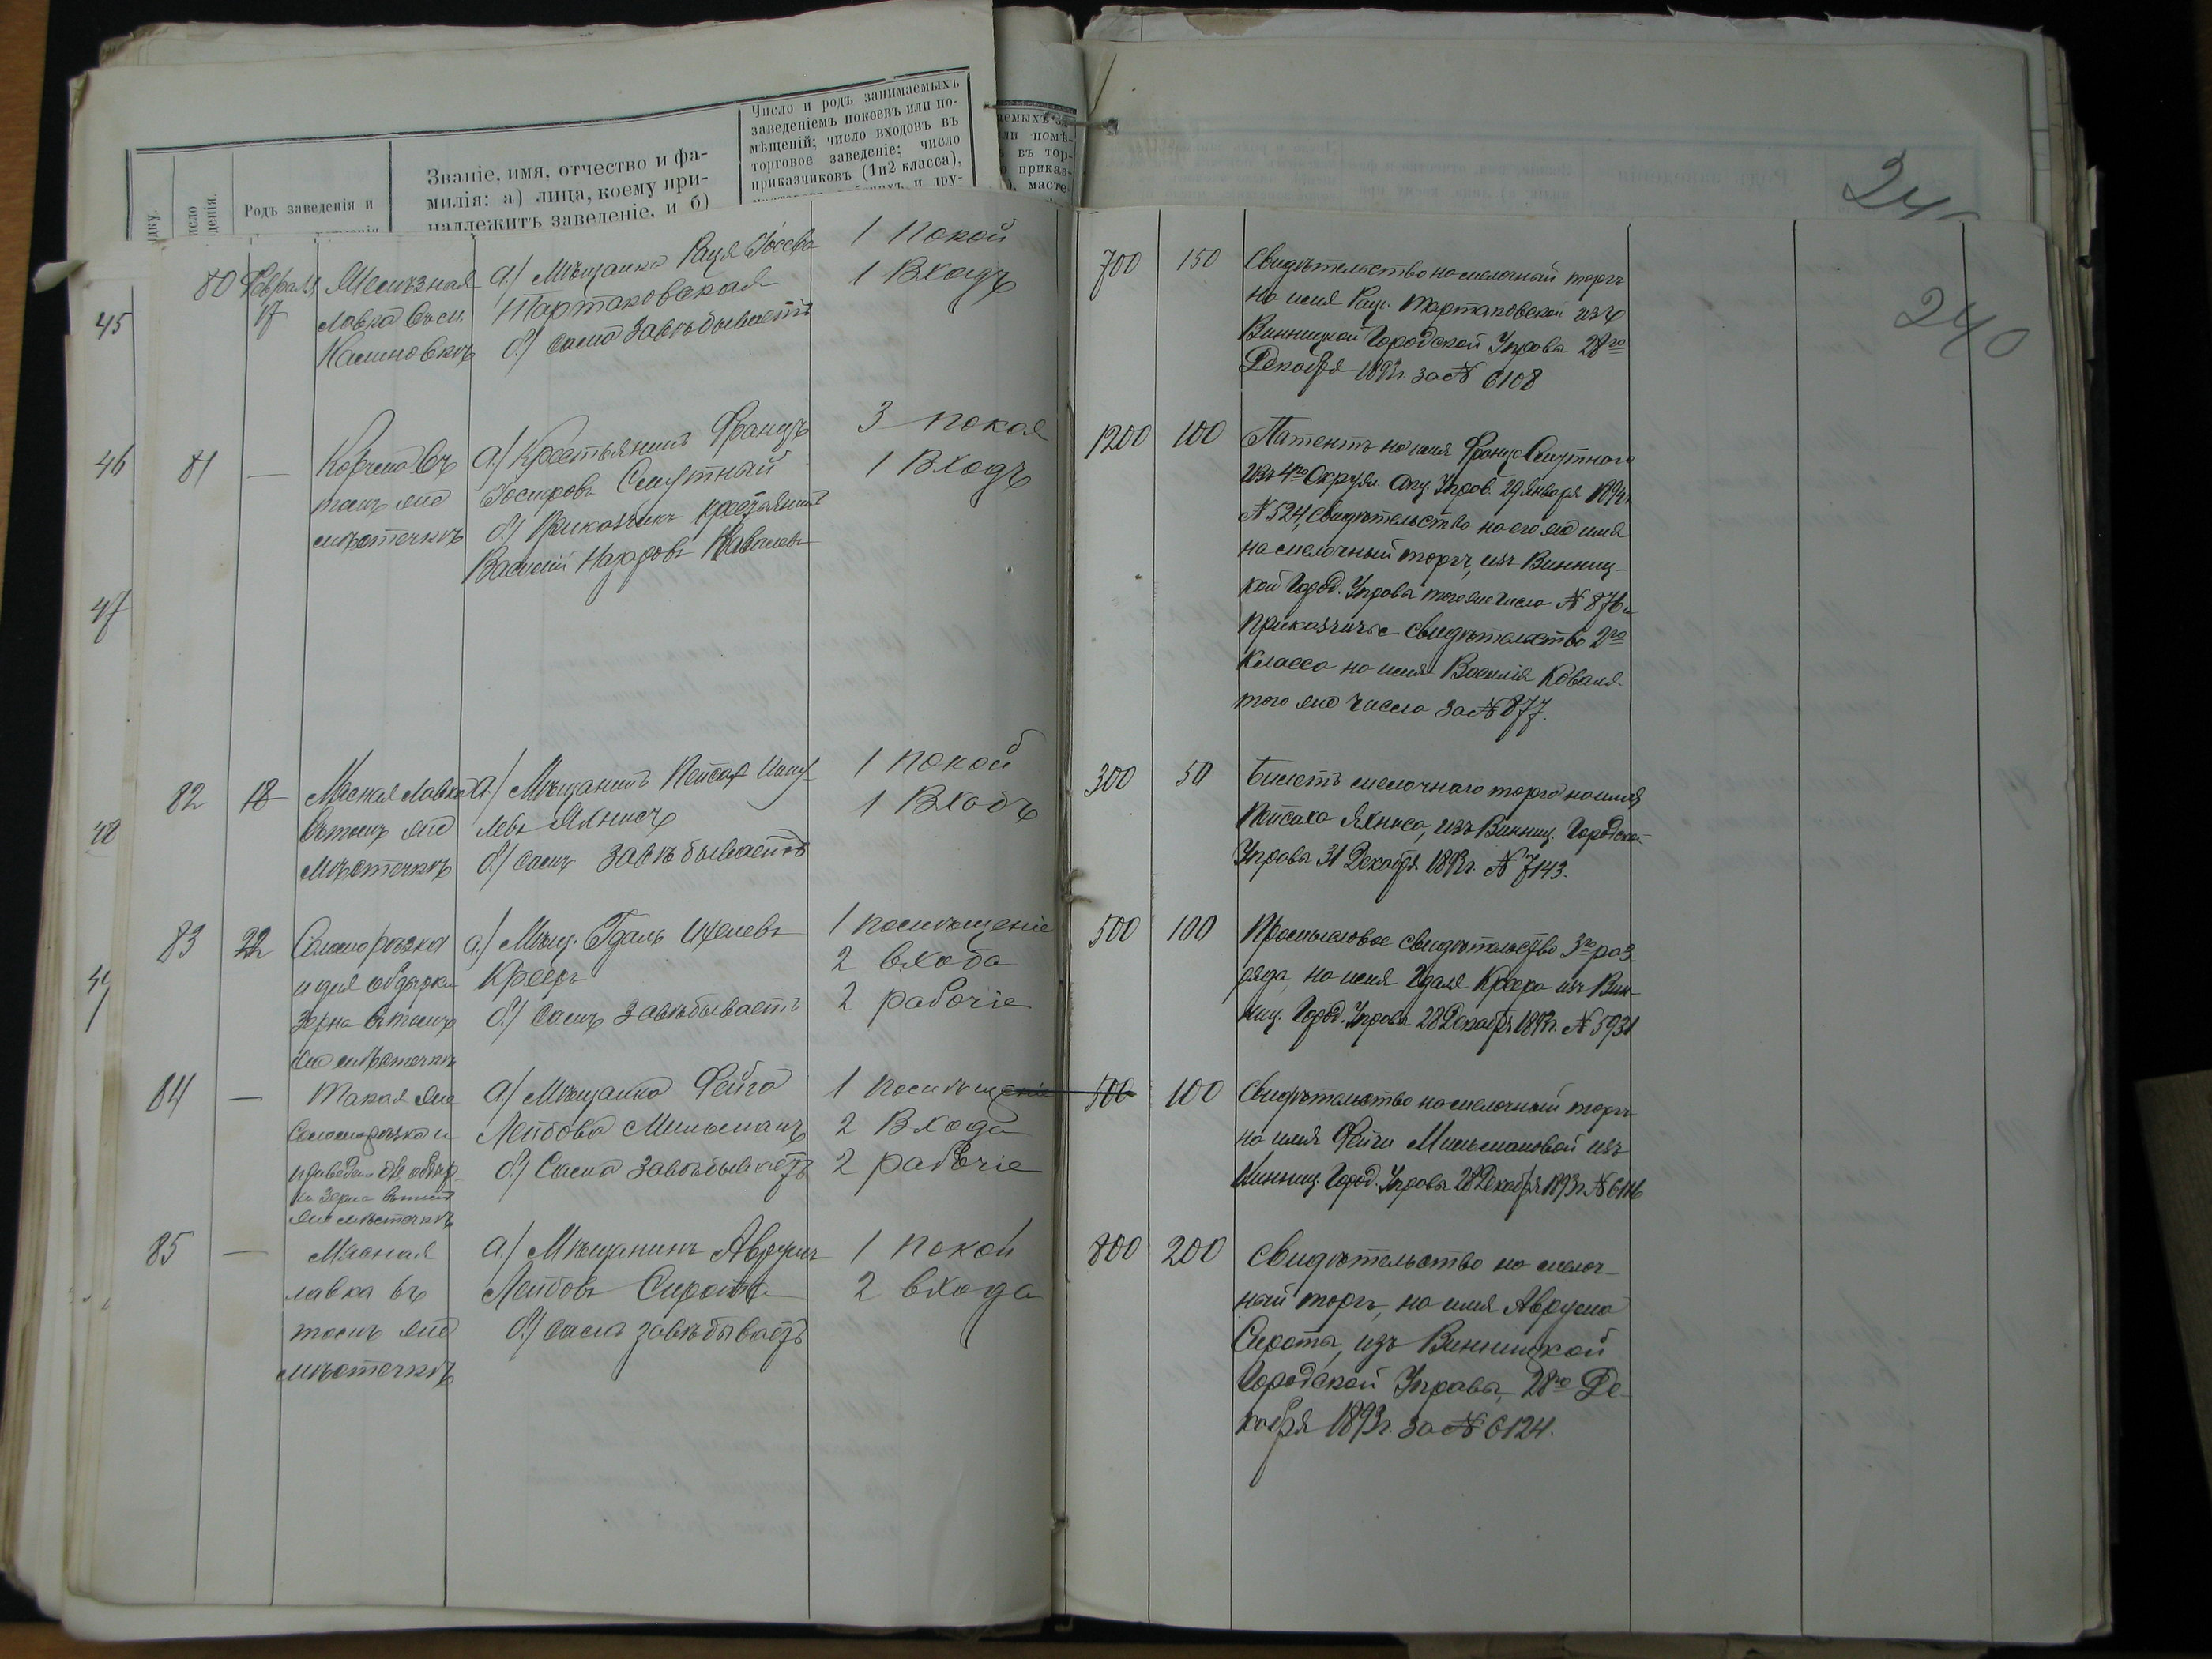 Родъ заведенія и
Званіе, имя, отчество и фа-
милія: а) лица, коему при-
надлежитъ заведеніе, и б)
Число и родъ занимаемыхъ
заведеніемъ покоевъ или по-
мѣщеній; число входовъ въ
торговое заведеніе; число
приказчиковъ (1 и 2 класса),
240
45
80 Февраля 17
лавка въ м.
Калиновкѣ
а) Мѣщанка Рухля Іосева
Тартаковская
б) сама завѣдываетъ
1 покой
1 входъ
700 150
Свидѣтельство на мелочный торгъ
на имя Тартаковской изъ
Винницкой Городской Управы 28го
Декабря 1893г за № 6108
46
81 —
Корчма въ
томъ же
мѣстечкѣ
а) Крестьянинъ Францъ
Смутный
б) Приказчикъ крестьянинъ
Василій
3 покоя
1 входъ
1200 100
Патентъ на имя Франца Смутнаго
изъ 4го Окружн. Акц. Управ. 29 Января 1894г.
№ 524, свидѣтельство на его же имя
на мелочный торгъ, изъ Винниц-
кой Город. Управы того же числа № 876 и
приказчичье свидѣтельство 2го
класса на имя Василія Коваля
того же числа за № 877.
47
82 18
Мясная лавка
въ томъ же
мѣстечкѣ
а) Мѣщанинъ Пейсах
левъ Яхнисъ
б) самъ завѣдываетъ
1 покой
1 входъ
300 50
Билетъ мелочнаго торга на имя
Пейсаха Яхниса, изъ Винниц. Городской
Управы 31 Декабря 1893г. № 7143.
48
83 22
Соломорѣзка
и для обдирки
зерна въ томъ
же мѣстечкѣ
а) Мѣщ. Гдаль
Крееръ
б) самъ завѣдываетъ
1 помѣщеніе
2 входа
2 рабочіе
500 100
Промысловое свидѣтельство 3го раз-
ряда, на имя Гдаля Креера изъ Вин-
ниц. Город. Управы 28 Декабря 1893г. № 5931
49
84 —
Такая же
соломорѣзка и
же мѣстечкѣ
а) Мѣщанка Фейга
Лейбова Мильманъ
б) Сама завѣдываетъ
1 помѣщеніе
2 входа
2 рабочіе
500 100
Свидѣтельство на мелочный торгъ
на имя Фейги Мильмановой изъ
Винниц. Город. Управы 28 Декабря 1893г № 6116
85 —
Мясная
лавка въ
томъ же
мѣстечкѣ
а) Мѣщанинъ Аврумъ
Лейбовъ Сирота
б) самъ завѣдываетъ
1 покой
2 входа
800 200
Свидѣтельство на мелоч-
ный торгъ, на имя Аврума
Сироты, изъ Винницкой
Городской Управы, 28го Де-
кабря 1893г. за № 6124.